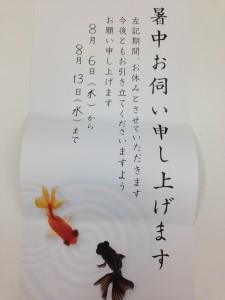 暑中お伺い申し上げます
左記期間、お休みとさせていただきます
今後ともお引き立てくださいますよう
お願い申し上げます
8月6日(水)から
8月13日(水)まで